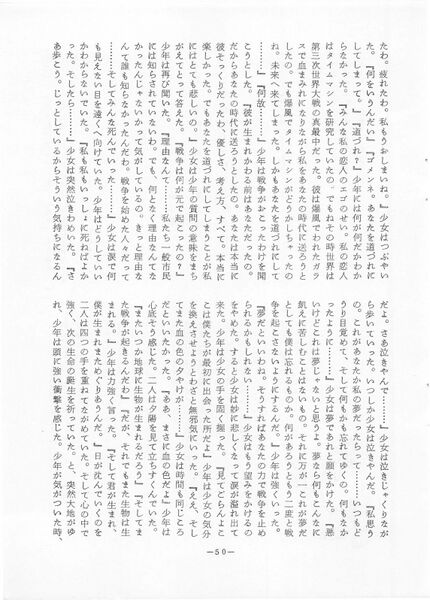 たわ。疲れたわ。私もうおしまいね。』少女はつぶやい
た。『何をいうんだい』『ゴメンネ。あなたを道づれに
してしまって。』『道づれ?』少年には何が何だかわか
らなかった。『みんな私の恋人のエゴのせい。私の恋人
はタイムマシンを研究していたの。でもねその時世界は
第三次世界大戦の真最中だった。彼は爆風でわれたガラ
スで血まみれになりながら私をあなたの時代に送ろうと
したの。でも爆風でタイムマシンがどうかしちゃったの
ね。未来へ来てしまった。しかもあなたを道づれにして
………』『何故……』少年は戦争がおこったわけを聞
こうとした。『彼が生まれかわる前はあなただったの。
だからあなたの時代に送ろうとしたの。あなたは本当に
彼そっくりだったわ。優しさ、考え方、すべて。本当に
楽しかった。でもあなたを道づれにしてしまうことが私
にはとても悲しいの。』少女は少年の質問の意味をまち
がえてとって答えた。『戦争は何が元で起こったの?』
少年は再び聞いた。『理由なんて………私たち一般市民
には知らされていないわ。でも、何となく理由なんてな
かったんじゃないかって気がしているの。きっと理由な
んて誰も知らなかったんだわ。戦争を始めた人々だって
………そしてみんな死んでいった……』少女は涙で何
も見えない目を遠くへ向けていた。少年はどうしていい
かわからないでいた。『私も私もいっしょに死ねばよか
った。そしたら……』少女は突然泣きわめいた。『さ
あ歩こう。じっとしているからそういう気持ちになるん
だよ。さあ泣きやんで……』少女は泣きじゃくりなが
ら歩いていった。いつしか少女は泣きやんだ。『私思う
の。これがあなたか私の夢だったらって………いつもど
うり目覚めて、そして何もかも忘れてゆくの。何もなか
ったように……』少女は夢であれと願をかけた。『悪
いけどこれは夢じゃないと思うよ。夢なら何もこんなに
飢えに苦しむことはないもの。それに万が一これが夢だ
としても僕は忘れるものか。何があろうともう二度と戦
争を起こさないようにするんだ。』少年は強くいった。
『夢だといいわね。そうすればあなたの力で戦争を止め
られるかもしれない……』少女はもう望みをかけるの
をやめた。すると少女は妙に悲しくなって涙が溢れ出て
来た。少年は少女の手を固く握った。『見てごらんよこ
こは僕たちが最初に出会った所だよ』少年は少女の気分
を換えさせようとわざと無邪気にいった。『ええ、そし
てまた血の色の夕やけが……』少女は時間も同じころ
だといいたかった。『ああ、まさに血の色だよ』少年は
心底そう感じた。二人は夕陽を見て立ちすくんでいた。
『またいつか地球に生物が生まれるだろう』『そしてま
た戦争が起きるんだわ』『だが、それでもまた生物は生
まれる。』少年は力強く言った。『そして君が生まれ、
僕が生まれまためぐりあうんだ。』日が沈んでいくのを
二人は四つの手を重ねてながめていた。そして心の中で
強く、次の生命の誕生を祈っていた。と、突然大地がゆ
れ、少年は頭に強い衝撃を感じた。少年が気がついた時、
―50―